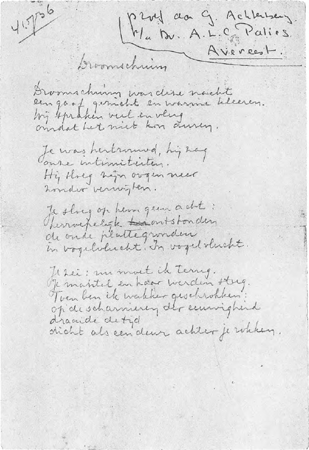 proef aan G. Achterberg
p/a Dr. A.L.C. Palies
Avereest.
Droomschuim
Droomschuim was deze nacht
een gaaf gezicht en warme kleeren.
Wij spraken veel en vlug
omdat het niet kon duren.
Je was hertrouwd, hij zag
onze intimiteiten.
Hij sloeg zijn oogen neer
zonder verwijten.
Je sloeg op hem geen acht:
herroepelijk ontstonden
de oude plattegronden
in vogelvlucht. In vogelvlucht.
Je zei: nu moet ik terug.
Je mantel en haar werden stug.
Toen ben ik wakker geschrokken:
op de scharnieren der eeuwigheid
draaide de tijd
dicht als een deur achter je rokken.